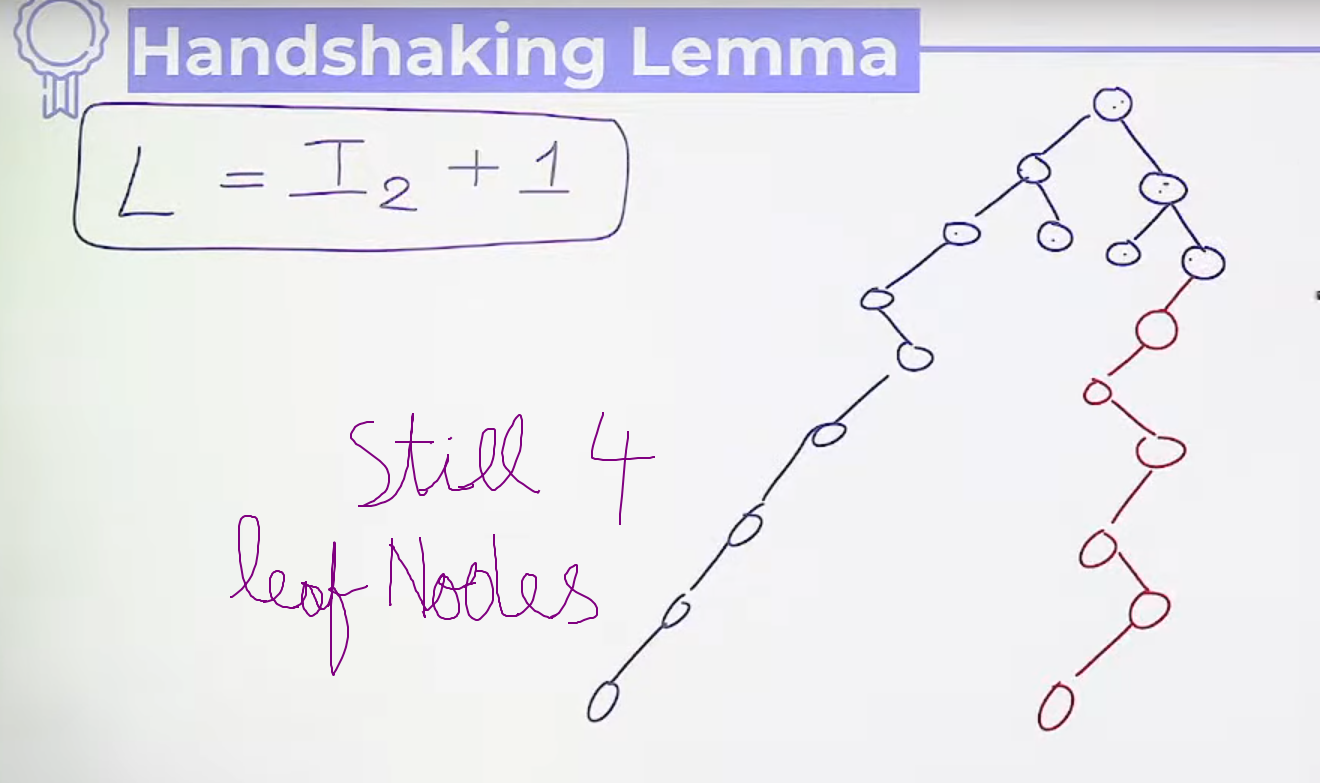 Handshaking Lemma
L = I₂ + 1
Still 4
leaf Nodes